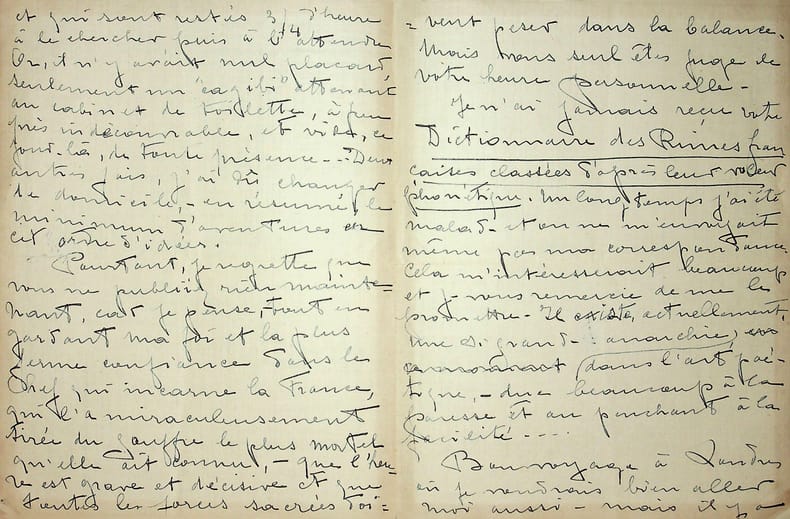 et qui sont restés 3/4 d'heure
à le chercher puis à l'attendre
Or, il n'y avait nul placard,
seulement un "cagibi" attenant
au cabinet de toilette, à peu
près indécouvrable, et vide, ce
jour-là, de toute présence --- Deux
autres fois, j'ai dû changer
de domicile, - en résumé, le
minimum d'aventures en
cet ordre d'idées.
Pourtant, je regrette que
vous ne publiiez rien mainte-
nant, car je pense, tout en
gardant ma foi et la plus
ferme confiance dans le
Chef qui incarne la France,
qui l'a miraculeusement
tirée du gouffre le plus mortel
qu'elle ait connu, - que l'heu-
re est grave et décisive et que
toutes les forces sacrées doi-
= vent peser dans la balance.
Mais vous seul êtes juge de
votre heure personnelle -
Je n'ai jamais reçu votre
Dictionnaire des Rimes fran
çaises classées d'après leur valeur
phonétique. Un long temps j'ai été
malade et on ne m'envoyait
même pas ma correspondance
Cela m'intéresserait beaucoup
et je vous remercie de me le
promettre - Il existe, actuellement,
une si grande anarchie,
dans l'art poé-
tique, - due beaucoup à la
paresse et au penchant à la
facilité ----
Bon voyage à Londres
où je voudrais bien aller
moi aussi - mais il y a